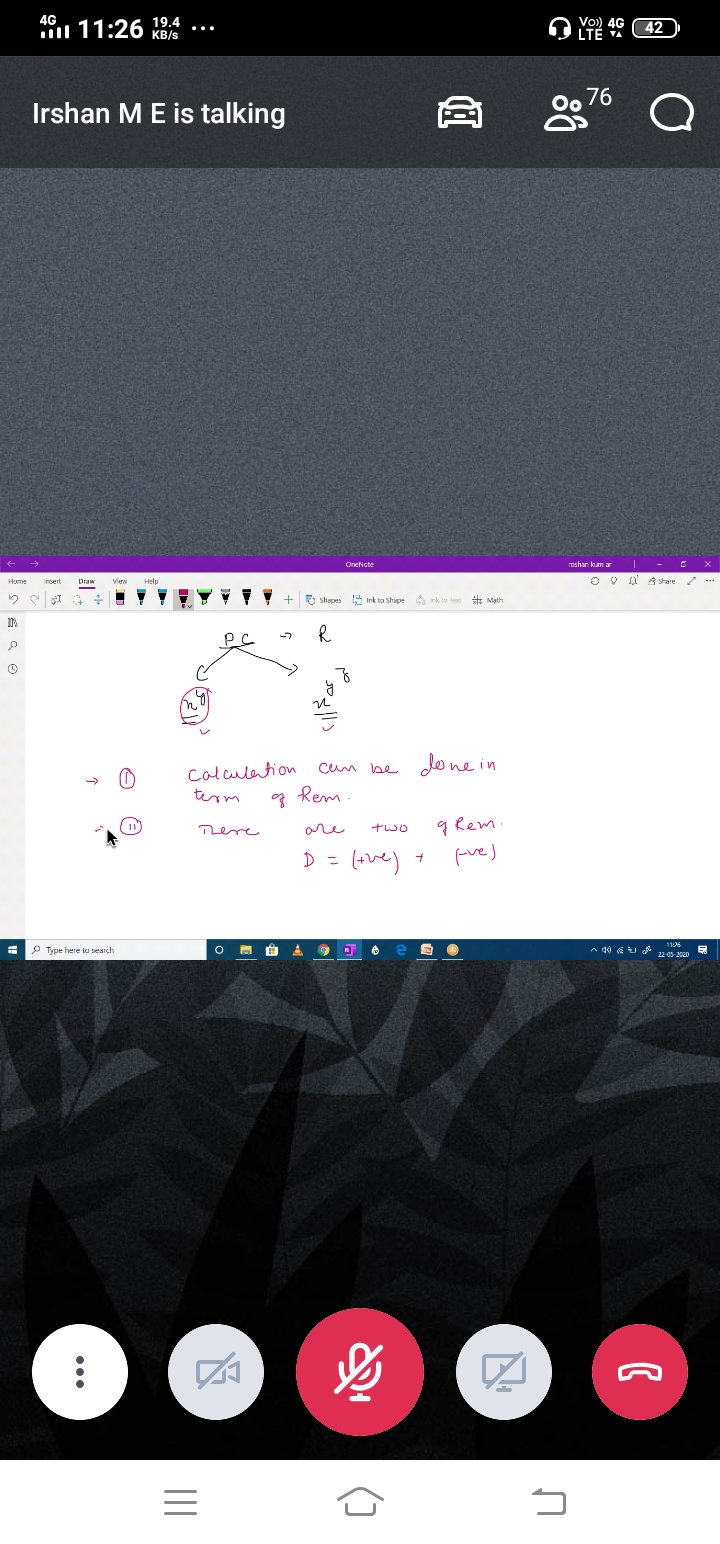 4G 11:26 19.4 KB/s ... Vo)) LTE 4G 42
Irshan M E is talking 76
OneNote roshan kum ar
Home Insert Draw View Help Share
Shapes Ink to Shape Ink to Text Math
P C → R
x^y x^y^z
→ (I) Calculation can be done in
term of Rem.
→ (II) There are two of Rem.
D = (+ve) + (-ve)
Type here to search 11:26
22-05-2020